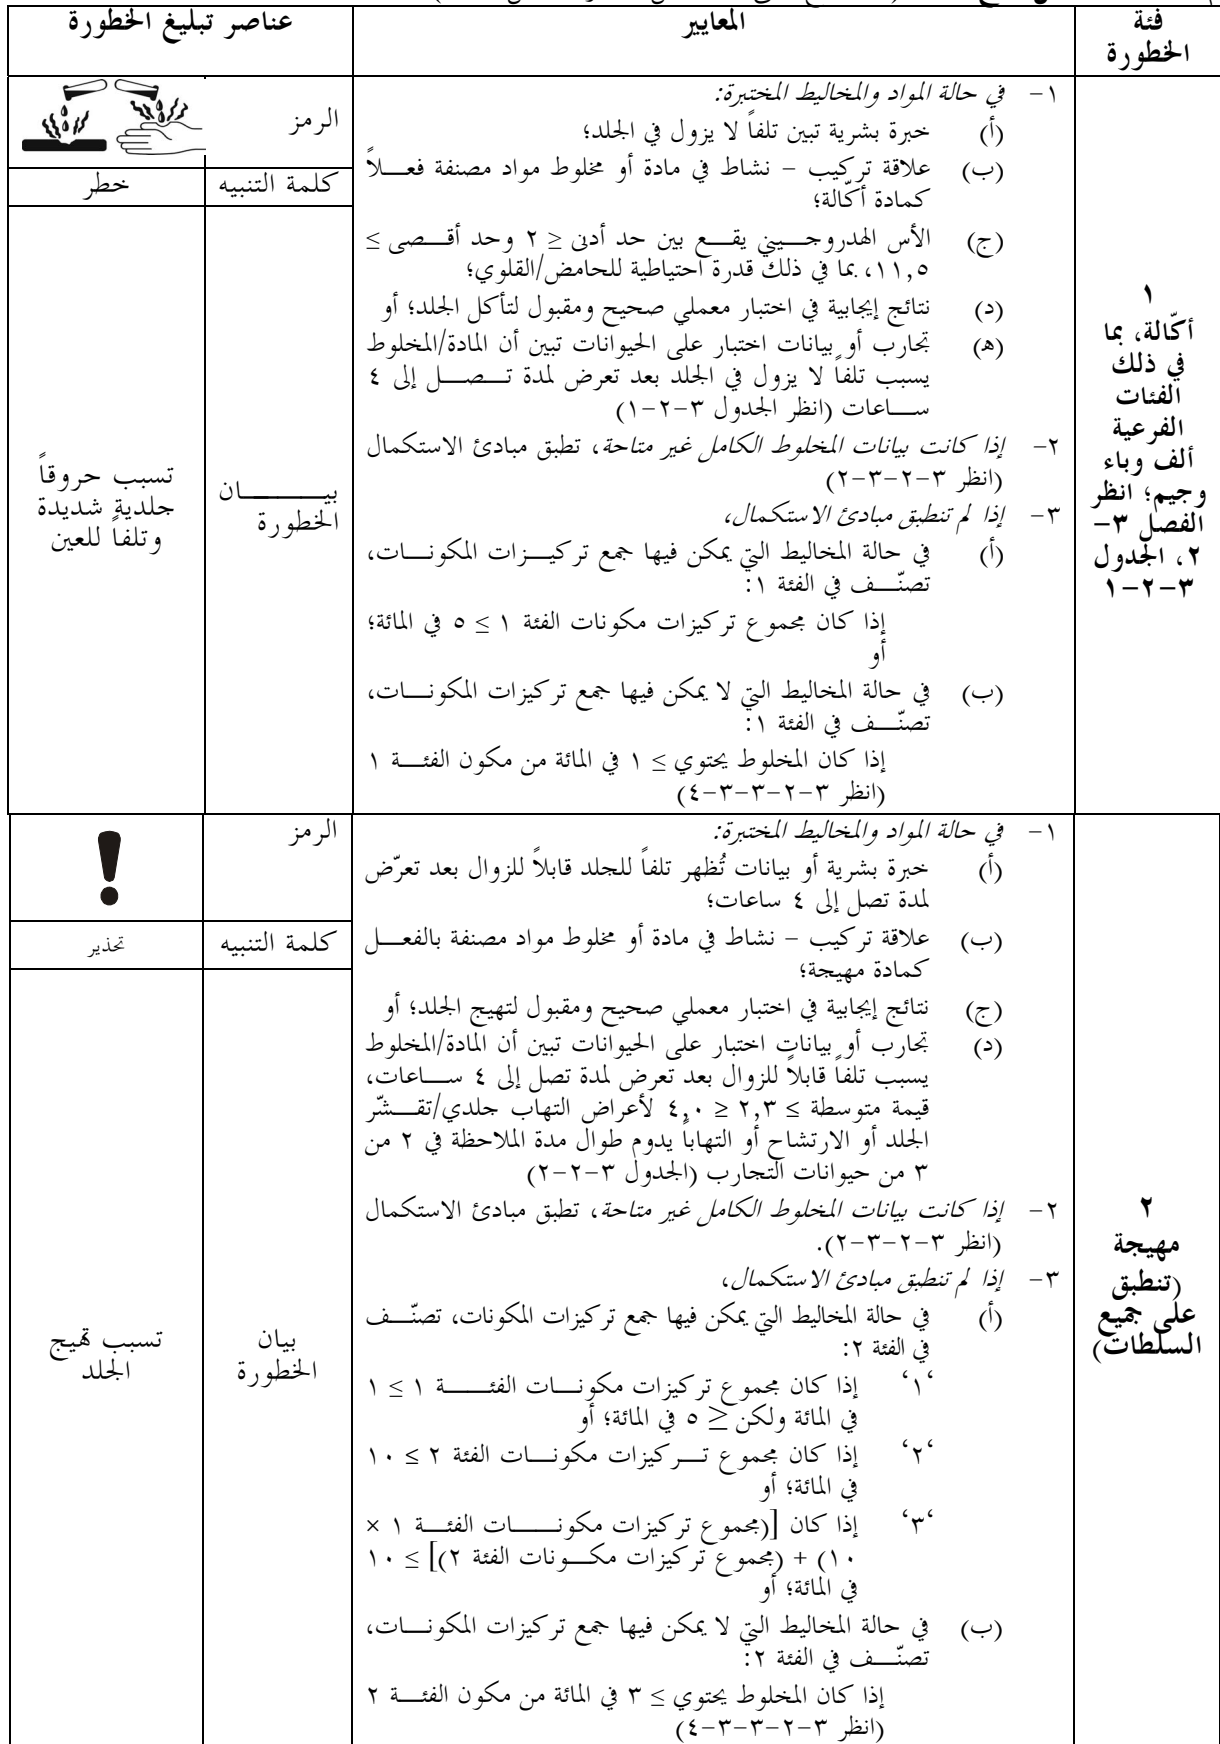 فئة الخطورة
المعايير
عناصر تبليغ الخطورة
١
أكّالة، بما
في ذلك
الفئات
الفرعية
ألف وباء
وجيم؛ انظر
الفصل ٣-
٢، الجدول
٣-٢-١
١- في حالة المواد والمخاليط المختبرة:
(أ) خبرة بشرية تبين تلفاً لا يزول في الجلد؛
(ب) علاقة تركيب – نشاط في مادة أو مخلوط مواد مصنفة فعلاً
كمادة أكّالة؛
(ج) الأس الهدروجيني يقع بين حد أدنى ≤ ٢ وحد أقصى ≥
١١,٥، بما في ذلك قدرة احتياطية للحامض/القلوي؛
(د) نتائج إيجابية في اختبار معملي صحيح ومقبول لتأكل الجلد؛ أو
(ه) تجارب أو بيانات اختبار على الحيوانات تبين أن المادة/المخلوط
يسبب تلفاً لا يزول في الجلد بعد تعرض لمدة تصل إلى ٤
ساعات (انظر الجدول ٣-٢-١)
٢- إذا كانت بيانات المخلوط الكامل غير متاحة، تطبق مبادئ الاستكمال
(انظر ٣-٢-٣-٢)
٣- إذا لم تنطبق مبادئ الاستكمال،
(أ) في حالة المخاليط التي يمكن فيها جمع تركيزات المكونات،
تصنّف في الفئة ١:
إذا كان مجموع تركيزات مكونات الفئة ١ ≥ ٥ في المائة؛
أو
(ب) في حالة المخاليط التي لا يمكن فيها جمع تركيزات المكونات،
تصنّف في الفئة ١:
إذا كان المخلوط يحتوي ≥ ١ في المائة من مكون الفئة ١
(انظر ٣-٢-٣-٣-٤)
الرمز
كلمة التنبيه
خطر
بيان
الخطورة
تسبب حروقاً
جلدية شديدة
وتلفاً للعين
٢
مهيجة
(تنطبق
على جميع
السلطات)
١- في حالة المواد والمخاليط المختبرة:
(أ) خبرة بشرية أو بيانات تُظهر تلفاً للجلد قابلاً للزوال بعد تعرّض
لمدة تصل إلى ٤ ساعات؛
(ب) علاقة تركيب – نشاط في مادة أو مخلوط مواد مصنفة بالفعل
كمادة مهيجة؛
(ج) نتائج إيجابية في اختبار معملي صحيح ومقبول لتهيج الجلد؛ أو
(د) تجارب أو بيانات اختبار على الحيوانات تبين أن المادة/المخلوط
يسبب تلفاً قابلاً للزوال بعد تعرض لمدة تصل إلى ٤ ساعات،
قيمة متوسطة ≥ ٢,٣ ≥ ٤,٠ لأعراض التهاب جلدي/تقشّر
الجلد أو الارتشاح أو التهاباً يدوم طوال مدة الملاحظة في ٢ من
٣ من حيوانات التجارب (الجدول ٣-٢-٢)
٢- إذا كانت بيانات المخلوط الكامل غير متاحة، تطبق مبادئ الاستكمال
(انظر ٣-٢-٣-٢).
٣- إذا لم تنطبق مبادئ الاستكمال،
(أ) في حالة المخاليط التي يمكن فيها جمع تركيزات المكونات، تصنّف
في الفئة ٢:
‘١‘ إذا كان مجموع تركيزات مكونات الفئة ١ ≥ ١
في المائة ولكن ≤ ٥ في المائة؛ أو
‘٢‘ إذا كان مجموع تركيزات مكونات الفئة ٢ ≥ ١٠
في المائة؛ أو
‘٣‘ إذا كان [(مجموع تركيزات مكونات الفئة ١ ×
١٠) + (مجموع تركيزات مكونات الفئة ٢)] ≥ ١٠
في المائة؛ أو
(ب) في حالة المخاليط التي لا يمكن فيها جمع تركيزات المكونات،
تصنّف في الفئة ٢:
إذا كان المخلوط يحتوي ≥ ٣ في المائة من مكون الفئة ٢
(انظر ٣-٢-٣-٣-٤)
الرمز
كلمة التنبيه
تحذير
بيان
الخطورة
تسبب تهيج
الجلد